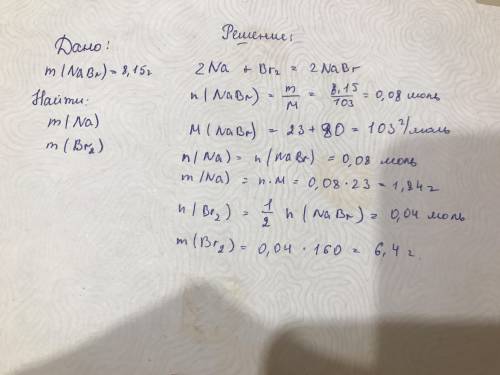 Дано:
m(NaBr) = 8,15г
Найти:
m(Na)
m(Br₂)
Решение:
2Na + Br₂ = 2NaBr
n(NaBr) = m/M = 8,15/103 = 0,08 моль
M(NaBr) = 23 + 80 = 103 г/моль
n(Na) = n(NaBr) = 0,08 моль
m(Na) = n·M = 0,08·23 = 1,84г
n(Br₂) = 1/2 n(NaBr) = 0,04 моль
m(Br₂) = 0,04 · 160 = 6,4 г.